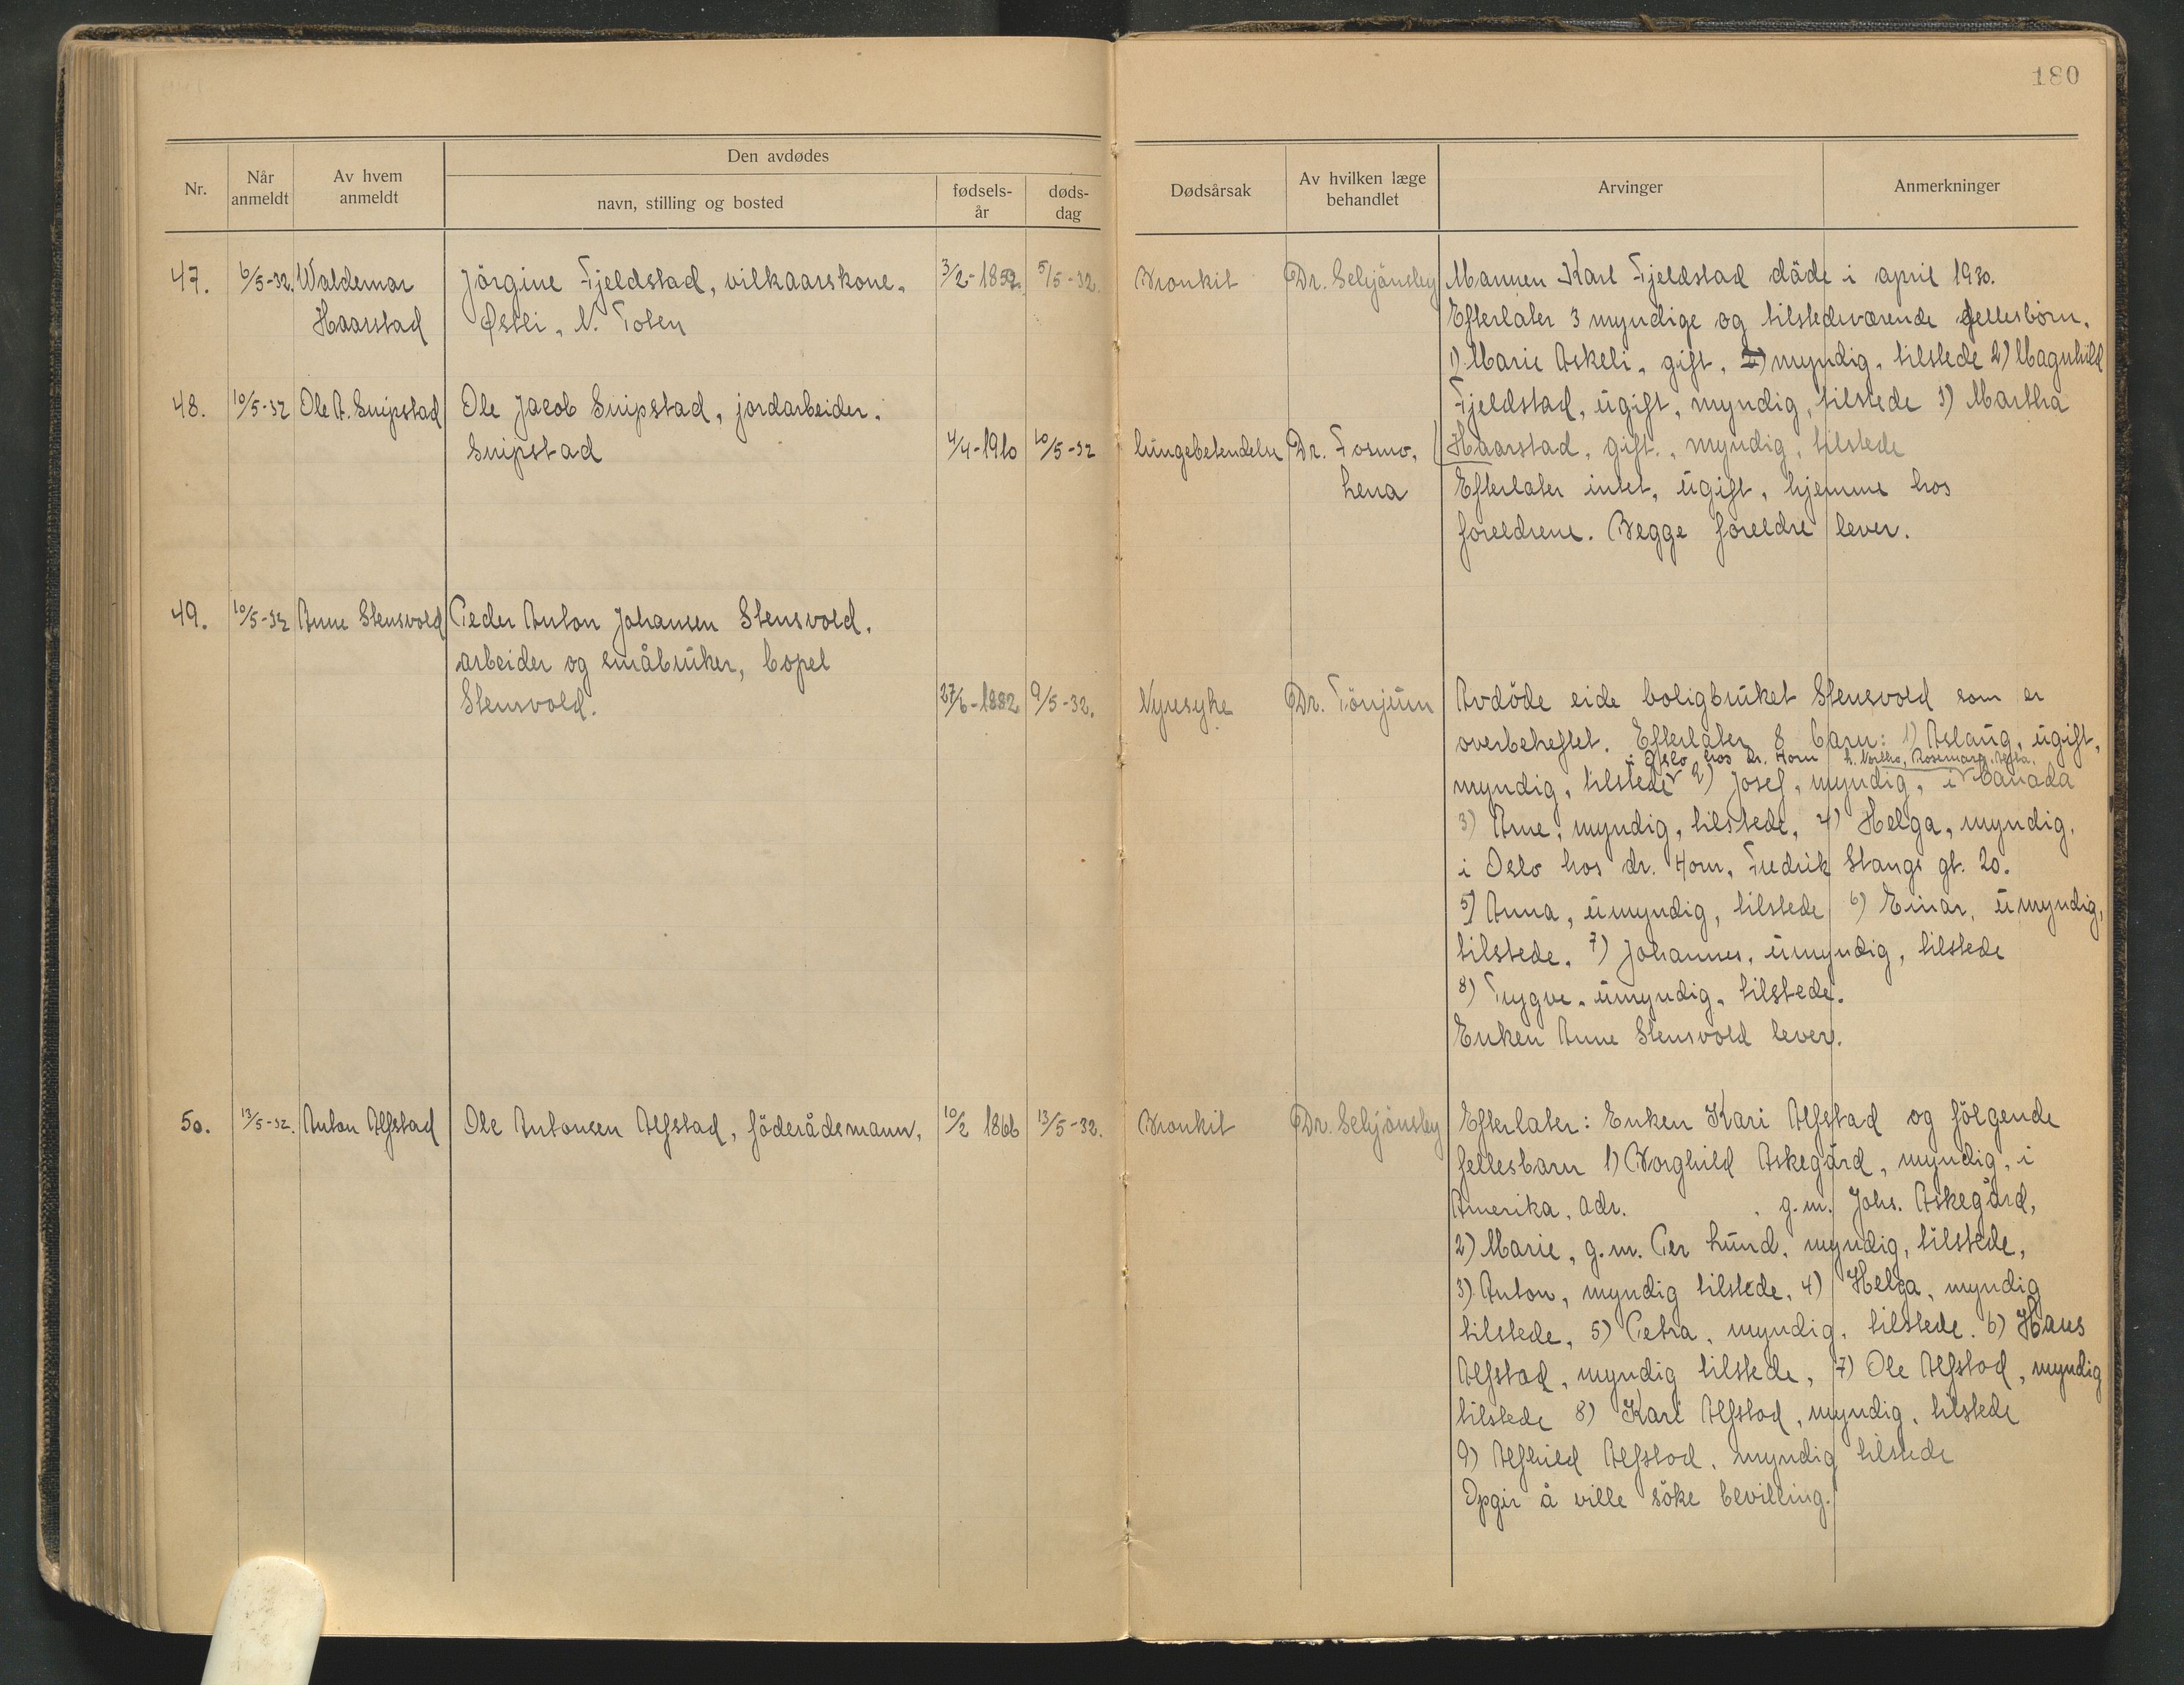 180
Nr.
Når anmeldt
Av hvem anmeldt
Den avdødes
navn, stilling og bosted
fødsels-år
døds-dag
Dødsårsak
Av hvilken læge behandlet
Arvinger
Anmerkninger
47. 6/5-32. Waldemar Jörgine Fjeldstad, vilkaarskone, 3/2-1852. 5/5-32. Bronkit Dr. Seljönsley Mannen Karl Fjeldstad döde i april 1930.
Haarstad Østli, N. Toten Efterlater 3 myndige og tilstedeværende fellesbörn.
1) Marie Askeli, gift, myndig, tilstede 2) Magnhild
48. 10/5-32 Ole A. Snipstad Ole Jacob Snipstad, jordarbeider, Fjeldstad, ugift, myndig, tilstede 3) Martha
Snipstad 4/4-1910 10/5-32 Lungebetendelse Dr. Fosmo, Haarstad, gift, myndig, tilstede
Lena Efterlater intet, ugift, hjemme hos
foreldrene. Begge foreldre lever.
49. 10/5-32 Anne Stensvold Peder Anton Johansen Stensvold,
arbeider og småbruker, bopel
Stensvold. 27/6-1882 9/5-32. Nyresyke Dr. Tönjum Avdöde eide boligbruket Stensvold som er
overbeheftet. Efterlater 8 barn: 1) Aslaug, ugift,
i Oslo hos dr. Horn
myndig, tilstede 2) Josef, myndig, i Canada
3) Arne, myndig, tilstede, 4) Helga, myndig,
i Oslo hos dr. Horn, Fredrik Stangs gt. 20.
5) Anna, umyndig, tilstede 6) Einar, umyndig,
tilstede. 7) Johannes, umyndig, tilstede
8) Trygve, umyndig, tilstede.
Enken Anne Stensvold lever.
50. 13/5-32. Anton Alfstad Ole Antonsen Alfstad, föderådsmann, 10/2 1866 13/5-32. Bronkit Dr. Seljönsley Efterlater: Enken Kari Alfstad og fölgende
fellesbarn 1) Borghild Askegård, myndig, i
Amerika, adr. , g.m. Johs. Askegård,
2) Marie, g.m. Per Lund, myndig, tilstede,
3) Anton, myndig tilstede, 4) Helga, myndig
tilstede, 5) Petra, myndig, tilstede. 6) Hans
Alfstad, myndig tilstede, 7) Ole Alfstad, myndig
tilstede 8) Kari Alfstad, myndig, tilstede
9) Alfhild Alfstad, myndig tilstede
Opgir å ville söke bevilling.